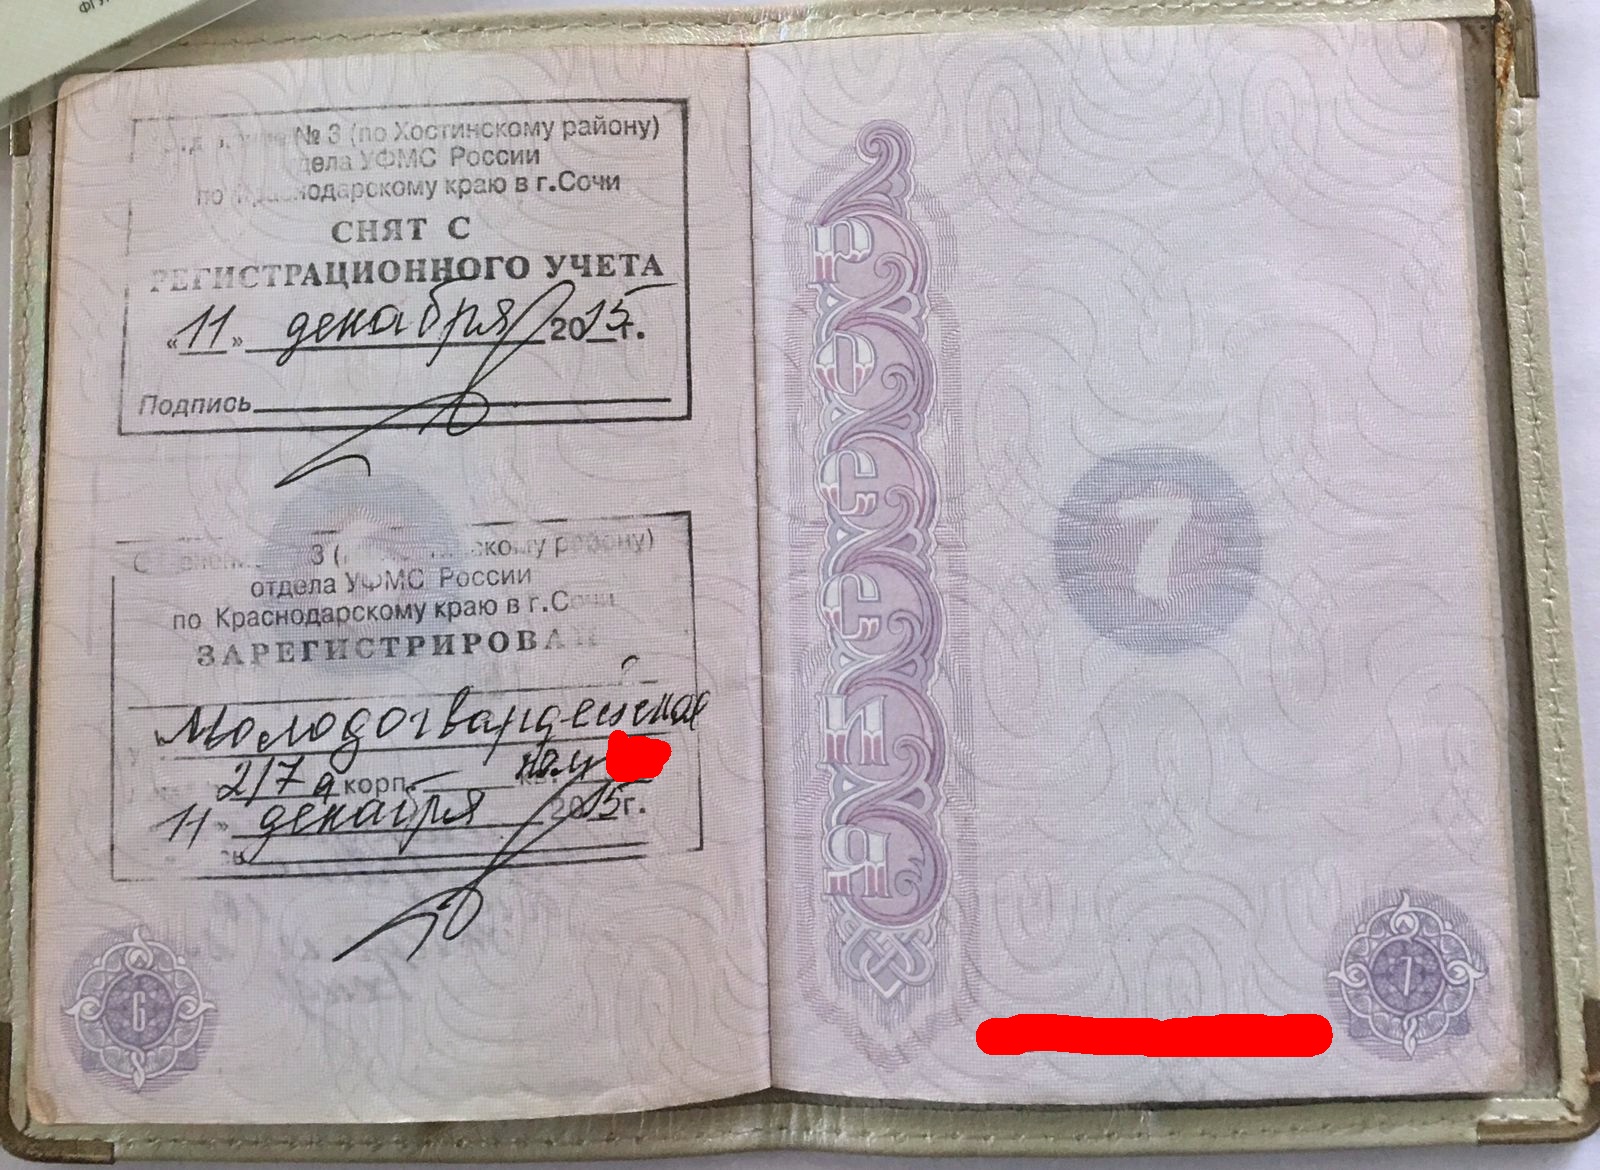 № 3 (по Хостинскому району)
отдела УФМС России
по Краснодарскому краю в г.Сочи
СНЯТ С
РЕГИСТРАЦИОННОГО УЧЕТА
«11» декабря 2015г.
Подпись
3 ( скому району)
отдела УФМС России
по Краснодарскому краю в г.Сочи
ЗАРЕГИСТРИРОВАН
Молодогвардейская
2/7 а корп. –
11 » декабря 2015г.
6
РОССИЯ
7
7